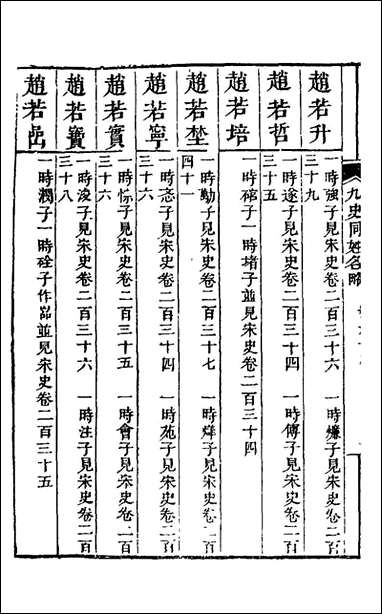 九史同姓名略
趙若升 一時強子見宋史卷二百三十六 一時㷿子見宋史卷二百
三十九
趙若哲 一時遂子見宋史卷二百三十四 一時傅子見宋史卷二百
三十五
趙若培 一時䅵子一時堵子並見宋史卷二百三十四
趙若埜 一時勛子見宋史卷二百三十七 一時㷿子見宋史卷二百
四十一
趙若寧 一時忞子見宋史卷二百三十四 一時苑子見宋史卷二百
三十六
趙若實 一時㤓子見宋史卷二百三十五 一時會子見宋史卷二百
三十六
趙若寶 一時淩子見宋史卷二百三十六 一時注子見宋史卷二百
三十八
趙若嵒 一時澗子一時銓子作喦並見宋史卷二百三十五